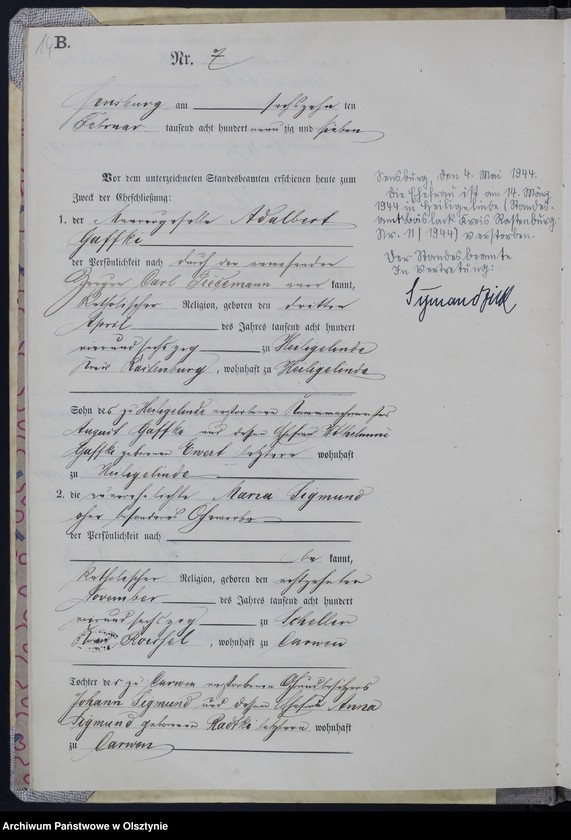 14
B.
Nr. 7
Sensburg am sechszehn ten
Februar tausend acht hundert neunzig und sieben
Vor dem unterzeichneten Standesbeamten erschienen heute zum
Zweck der Eheschließung:
1. der Maurergeselle Adalbert
Gaffke
der Persönlichkeit nach durch den anwesenden
Carl Tiedemann aner kannt,
katholischer Religion, geboren den dritten
April des Jahres tausend acht hundert
vierundsechszig zu Heiligelinde
Kreis Rastenburg, wohnhaft zu Heiligelinde
Sohn des zu Heiligelinde verstorbenen
August Gaffke und dessen Ehefrau Wilhelmine
Gaffke geborenen Ewert letztere wohnhaft
zu Heiligelinde
2. die unverehelichte Maria Sigmund
ohne besonderes Gewerbe
der Persönlichkeit nach
be kannt,
katholischer Religion, geboren den achtzehnten
November des Jahres tausend acht hundert
vierundsechszig zu Schellen
Kreis Roessel, wohnhaft zu Carwen
Tochter des zu Carwen verstorbenen Grundbesitzers
Johann Sigmund und dessen Ehefrau Anna
Sigmund geborenen Radtke letztere wohnhaft
zu Carwen
Sensburg, den 4. Mai 1944.
Die Ehefrau ist am 14. März
1944 in Heiligelinde (Standes-
amt Bäslack Kreis Rastenburg
Nr. 11/1944) verstorben.
Der Standesbeamte
In Vertretung:
Archiwum Państwowe w Olsztynie